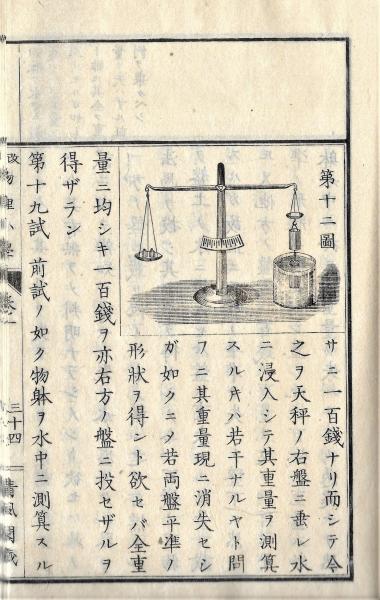 第十二圖
サニ一百錢ナリ而シテ今
之ヲ天秤ノ右盤ニ垂レ水
ニ浸入シテ其重量ヲ測算
スルキハ若干ナルヤト問
フニ其重量現ニ消失セシ
ガ如クニメ若両盤平準ノ
形狀ヲ得ント欲セバ全重
量ニ均シキ一百錢ヲ亦右方ノ盤ニ投セザルヲ
得ザラン
第十九試 前試ノ如ク物躰ヲ水中ニ測算スル
改
物理
三十四